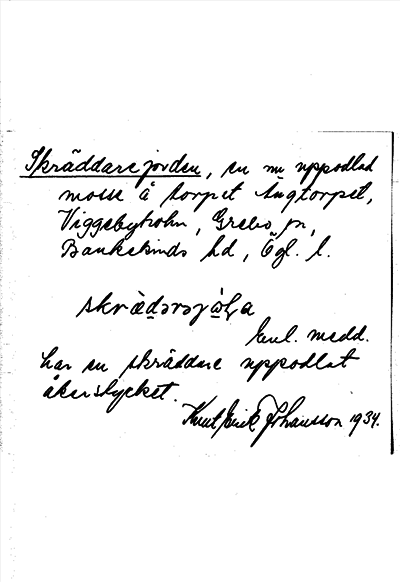 Skräddarejorden, en nu uppodlad
mosse å torpet Ängtorpet,
Viggebyholm, Grebo sn,
Bankekinds hd, Ögl. l.
skrädarejola
Enl. medd.
har en skräddare uppodlat
åkerstycket.
Knut Erik Johansson 1934.